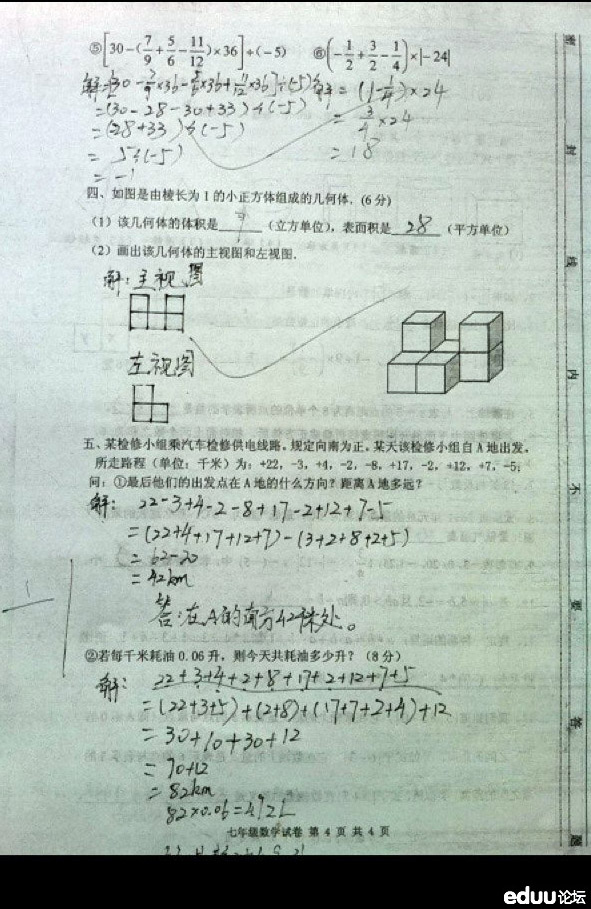 ⑤[30-(7/9+5/6-11/12)×36]÷(-5) ⑥(-1/2+3/2-1/4)×|-24|
解:=[30-7/9×36-5/6×36+11/12×36]÷(-5) 解:=(1-1/4)×24
=(30-28-30+33)÷(-5) =3/4×24
=(-28+33)÷(-5) =18
=5÷(-5)
=-1
四、如图是由棱长为1的小正方体组成的几何体. (6分)
(1)该几何体的体积是 7 (立方单位), 表面积是 28 (平方单位)
(2)画出该几何体的主视图和左视图.
解:主视图
左视图
五、某检修小组乘汽车检修供电线路, 规定向南为正, 某天该检修小组自A地出发,
所走路程(单位:千米)为:+22, -3, +4, -2, -8, +17, -2, +12, +7, -5;
问:①最后他们的出发点在A地的什么方向?距离A地多远?
解: 22-3+4-2-8+17-2+12+7-5
=(22+4+17+12+7)-(3+2+8+2+5)
=62-20
=42km
答:在A的南方42千米处。
②若每千米耗油0.06升, 则今天共耗油多少升?(8分)
解: 22+3+4+2+8+17+2+12+7+5
=(22+3+5)+(2+8)+(17+7+2+4)+12
=30+10+30+12
=70+12
=82km
82×0.06=4.92L
七年级数学试卷 第4页共4页
密
封
线
内
不
要
答
题
eduu论坛